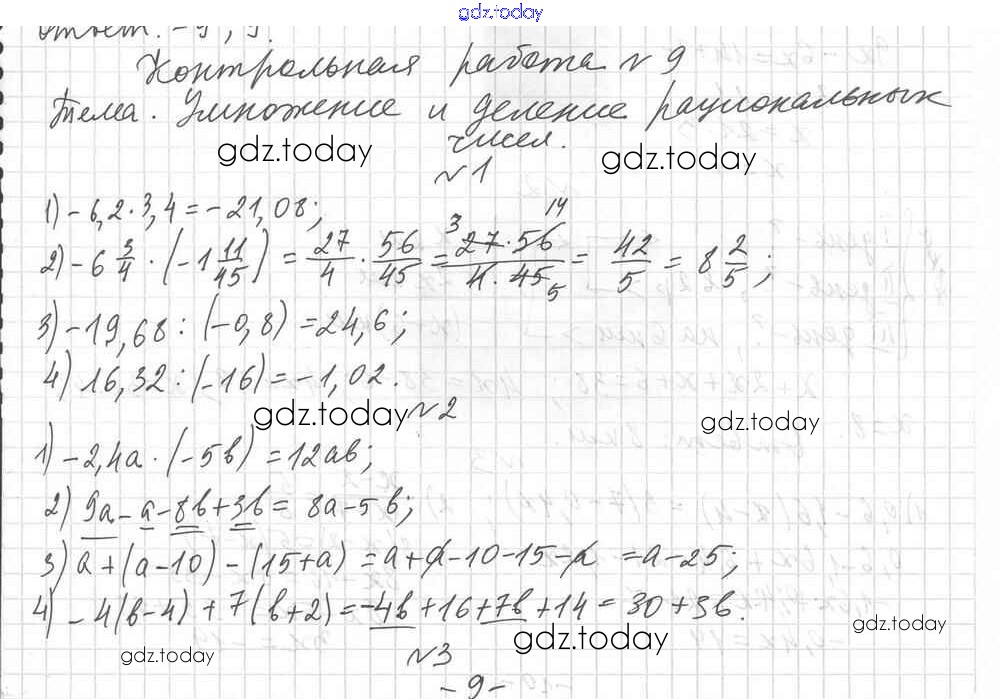 gdz.today
ответ: -9; 9.
Контрольная работа №9
Тема. Умножение и деление рациональных
чисел.
gdz.today
gdz.today
№1
1) -6,2·3,4=-21,08;
2) -6 3/4 · (-1 11/45) = 27/4 · 56/45 = 27·56/4·45 = 42/5 = 8 2/5;
3) -19,68 : (-0,8) = 24,6;
4) 16,32 : (-16) = -1,02.
gdz.today
№2
gdz.today
1) -2,4a · (-5b) = 12ab;
2) 9a-a-8b+3b = 8a-5b;
3) a+(a-10)-(15+a) = a+a-10-15-a = a-25;
4) -4(b-4)+7(b+2) = -4b+16+7b+14 = 30+3b.
gdz.today
gdz.today
gdz.today
№3
-9-